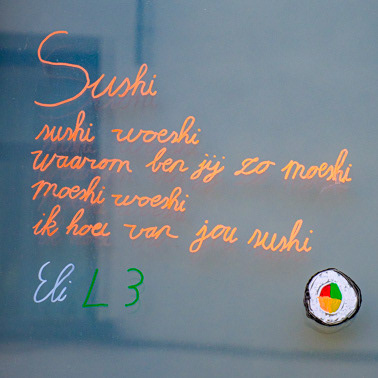 Sushi
sushi woeshi
waarom ben jij zo moeshi
moeshi woeshi
ik hou van jou sushi
Eli L 3